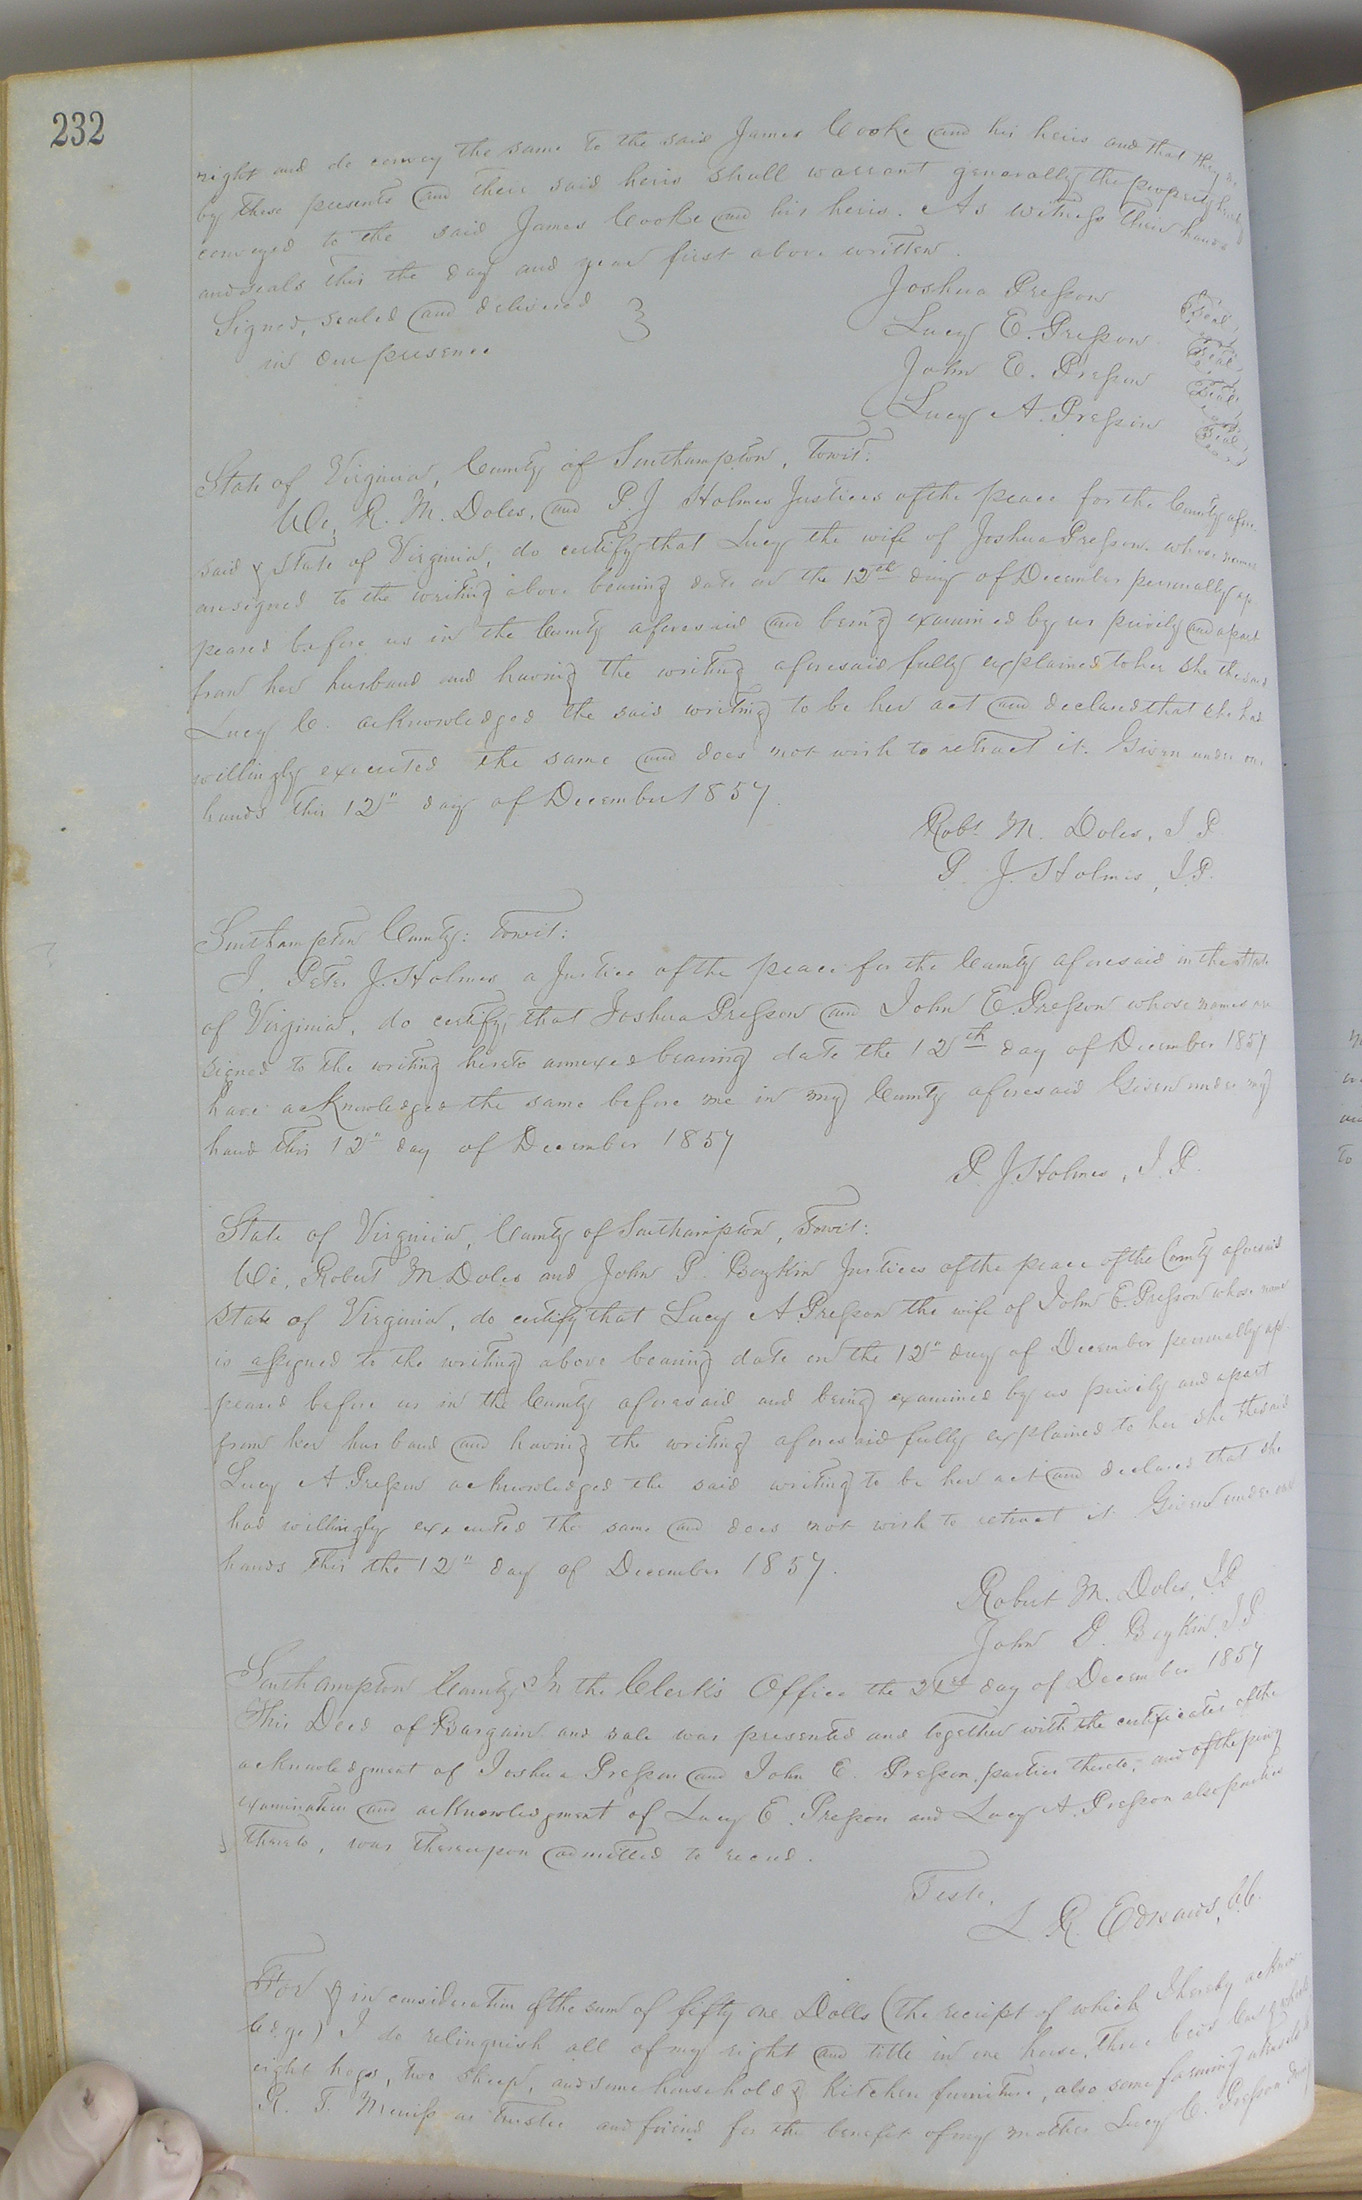 232
right and do convey the same to the said James Cooke and his heirs and that they do
by these presents and their said heirs shall warrant generally the property hereby
conveyed to the said James Cooke and his heirs. As witness their hands
and seals this the day and year first above written.
Signed, sealed and delivered
in our presence
Joshua Presson Seal
Lucy E. Presson Seal
John E. Presson Seal
Lucy A. Presson Seal
State of Virginia, County of Southampton, Towit:
We, R. M. Doles, and P. J Holmes Justices of the peace for the County afore-
said & State of Virginia, do certify that Lucy the wife of Joshua Presson whose names
are signed to the writing above bearing date on the 12th day of December personally ap
peared before us in the County aforesaid and being examined by us privily and apart
from her husband and having the writing aforesaid fully explained to her she the said
Lucy E. acknowledged the said writing to be her act and declared that she had
willingly executed the same and does not wish to retract it. Given under our
hands this 12" day of December 1857.
Robt M. Doles, J P
P. J. Holmes, J.P.
Southampton County: towit:
I, Peter J. Holmes a Justice of the peace for the County aforesaid in the State
of Virginia, do certify that Joshua Presson and John E. Presson whose names are
signed to the writing hereto annexed bearing date the 12th day of December 1857
have acknowledged the same before me in my County aforesaid Given under my
hand this 12" day of December 1857
P. J. Holmes, J. P.
State of Virginia, County of Southampton, Towit:
We, Robert M Doles and John P. Boykin Justices of the peace of the County aforesaid
State of Virginia, do certify that Lucy A Presson the wife of John E. Presson whose name
is assigned to the writing above bearing date on the 12" day of December personally ap-
peared before us in the County aforesaid and being examined by us privily and apart
from her husband and having the writing aforesaid fully explained to her she the said
Lucy A Presson acknowledged the said writing to be her act and declared that she
had willingly executed the same and does not wish to retract it Given under our
hands this the 12" day of December 1857.
Robert M. Doles, J.P.
John P. Boykin J P
Southampton County: In the Clerk's Office the 21st day of December 1857
This Deed of Bargain and sale was presented and together with the certificates of the
acknowledgment of Joshua Presson and John E. Presson, parties thereto, and of the privy
examination and acknowledgment of Lucy E. Presson and Lucy A. Presson also parties
thereto, was thereupon admitted to record.
Teste,
L. R. Edwards, C.C.
For & in consideration of the sum of fifty one Dolls (the receipt of which I hereby acknow-
ledge) I do relinquish all of my right and title in one horse, three beds
eight hogs, two sheep, and some household & Kitchen furniture, also some farming utensils to
R. T. as trustee and friend for the benefit of my mother Lucy E. Presson